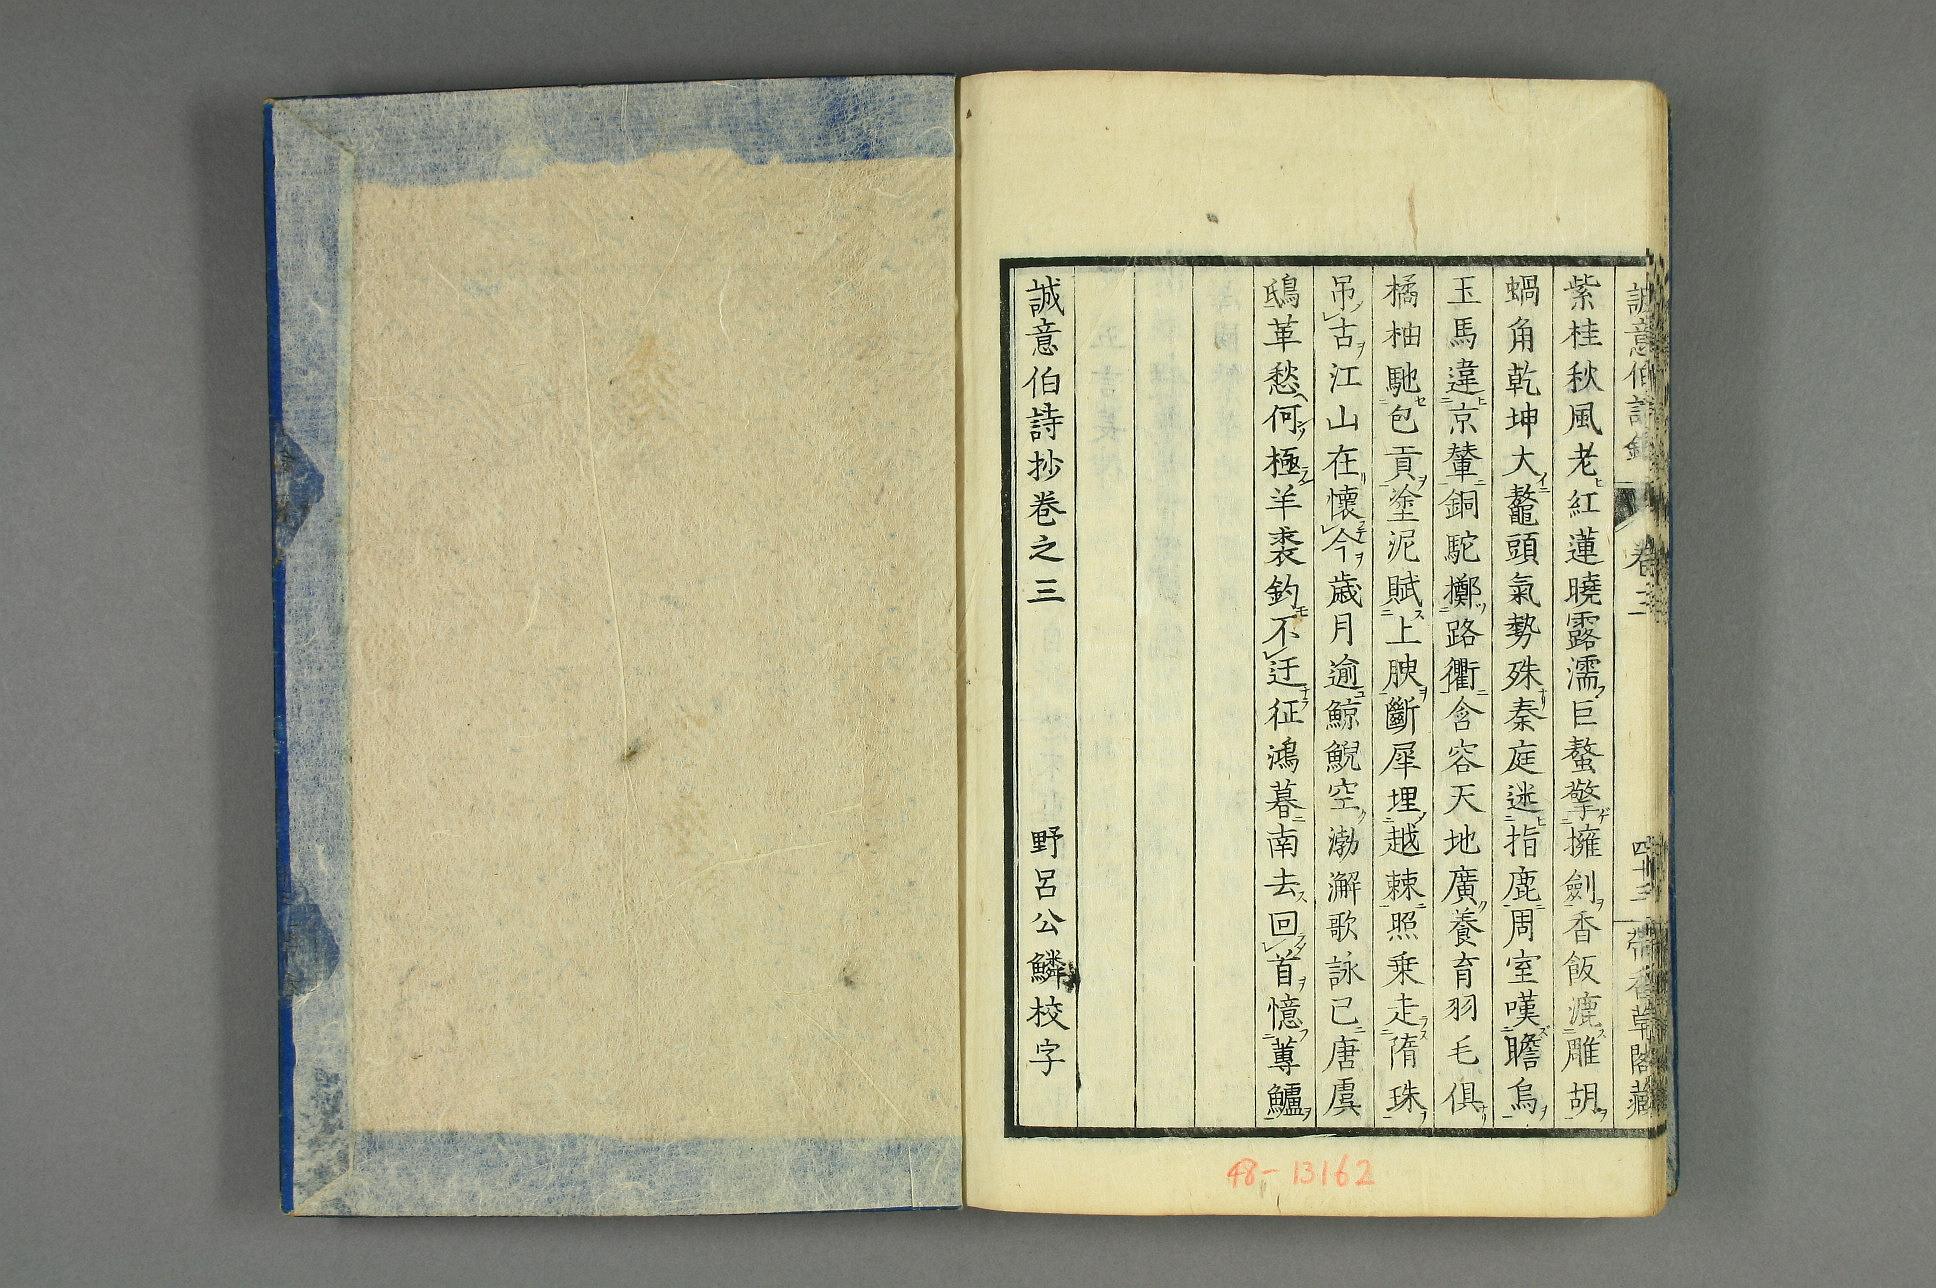 誠意伯詩鈔 卷三 四十三 帶香草閣藏
紫桂秋風老紅蓮曉露濡巨螯擎擁劍香飯漉雕胡
蝸角乾坤大鼇頭氣勢殊秦庭迷指鹿周室嘆瞻烏
玉馬違京輦銅駝擲路衢含容天地廣養育羽毛俱
橘柚馳包貢塗泥賦上腴斷犀埋越棘照乗走隋珠
吊古江山在懷今歲月逾鯨鯢空渤澥歌詠已唐虞
鴟革愁何極羊裘釣不迂征鴻暮南去回首憶蓴鱸
誠意伯詩抄卷之三 野呂公鱗校字
48-13162